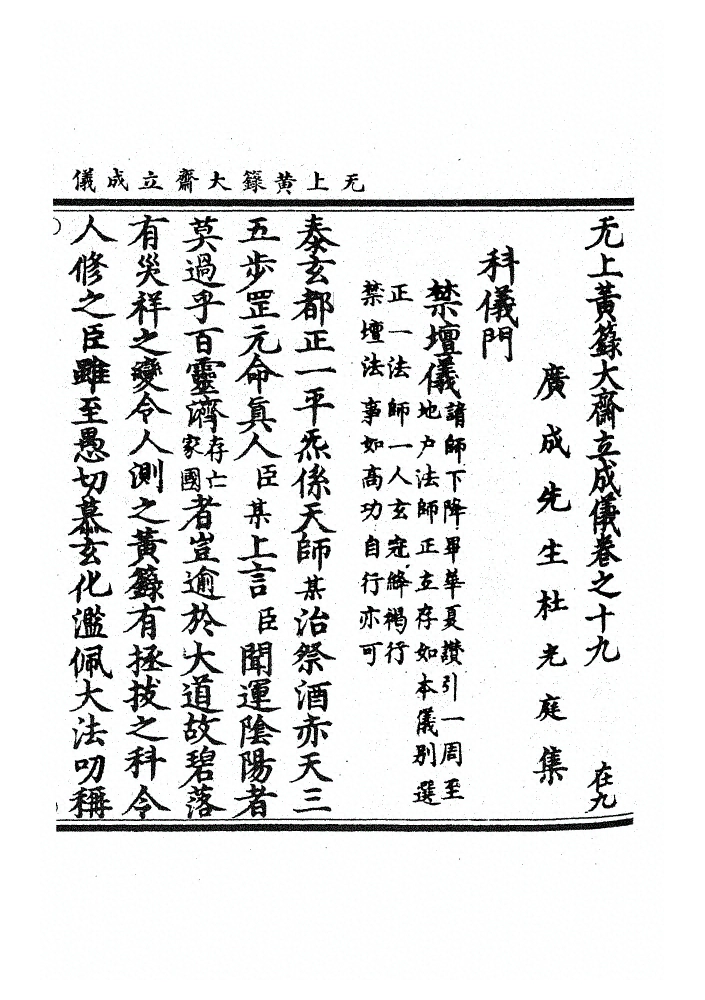 无上黄籙大齋立成儀
无上黃籙大齋立成儀卷之十九 在九
廣成先生杜光庭集
科儀門
禁壇儀 諸師下降畢華夏讚引一周至
地户法師正立存如本儀别選
正一法師一人玄冠絳褐行
禁壇法事如高功自行亦可
泰玄都正一平炁係天師某治祭酒亦天三
五步罡元命真人臣某上言臣聞運陰陽者
莫過乎百靈濟存亡家國者豈逾於大道故碧落
有災祥之變令人測之黄籙有拯拔之科令
人修之臣雖至愚切慕玄化濫佩大法叨稱